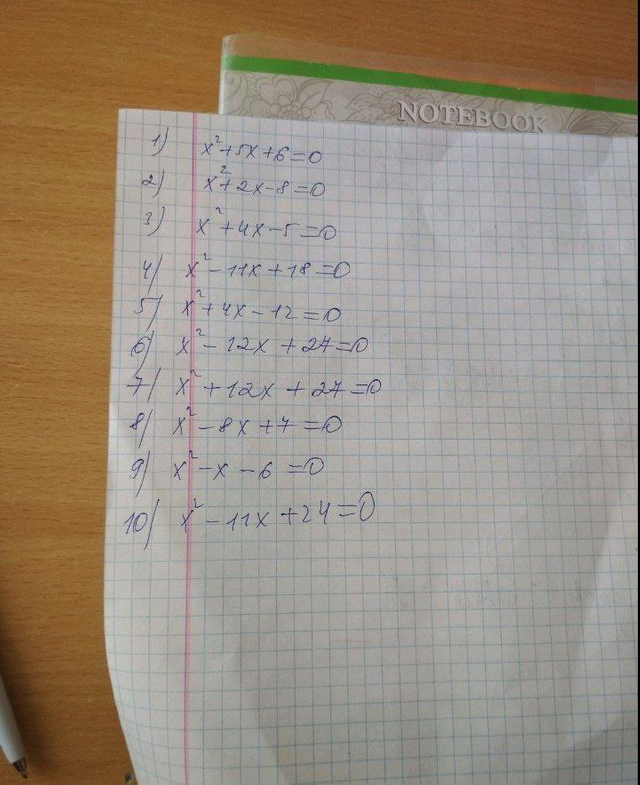 NOTEBOOK
1) x²+5x+6=0
2) x²+2x-8=0
3) x²+4x-5=0
4) x²-11x+18=0
5) x²+4x-12=0
6) x²-12x+27=0
7) x²+12x+27=0
8) x²-8x+7=0
9) x²-x-6=0
10) x²-11x+24=0